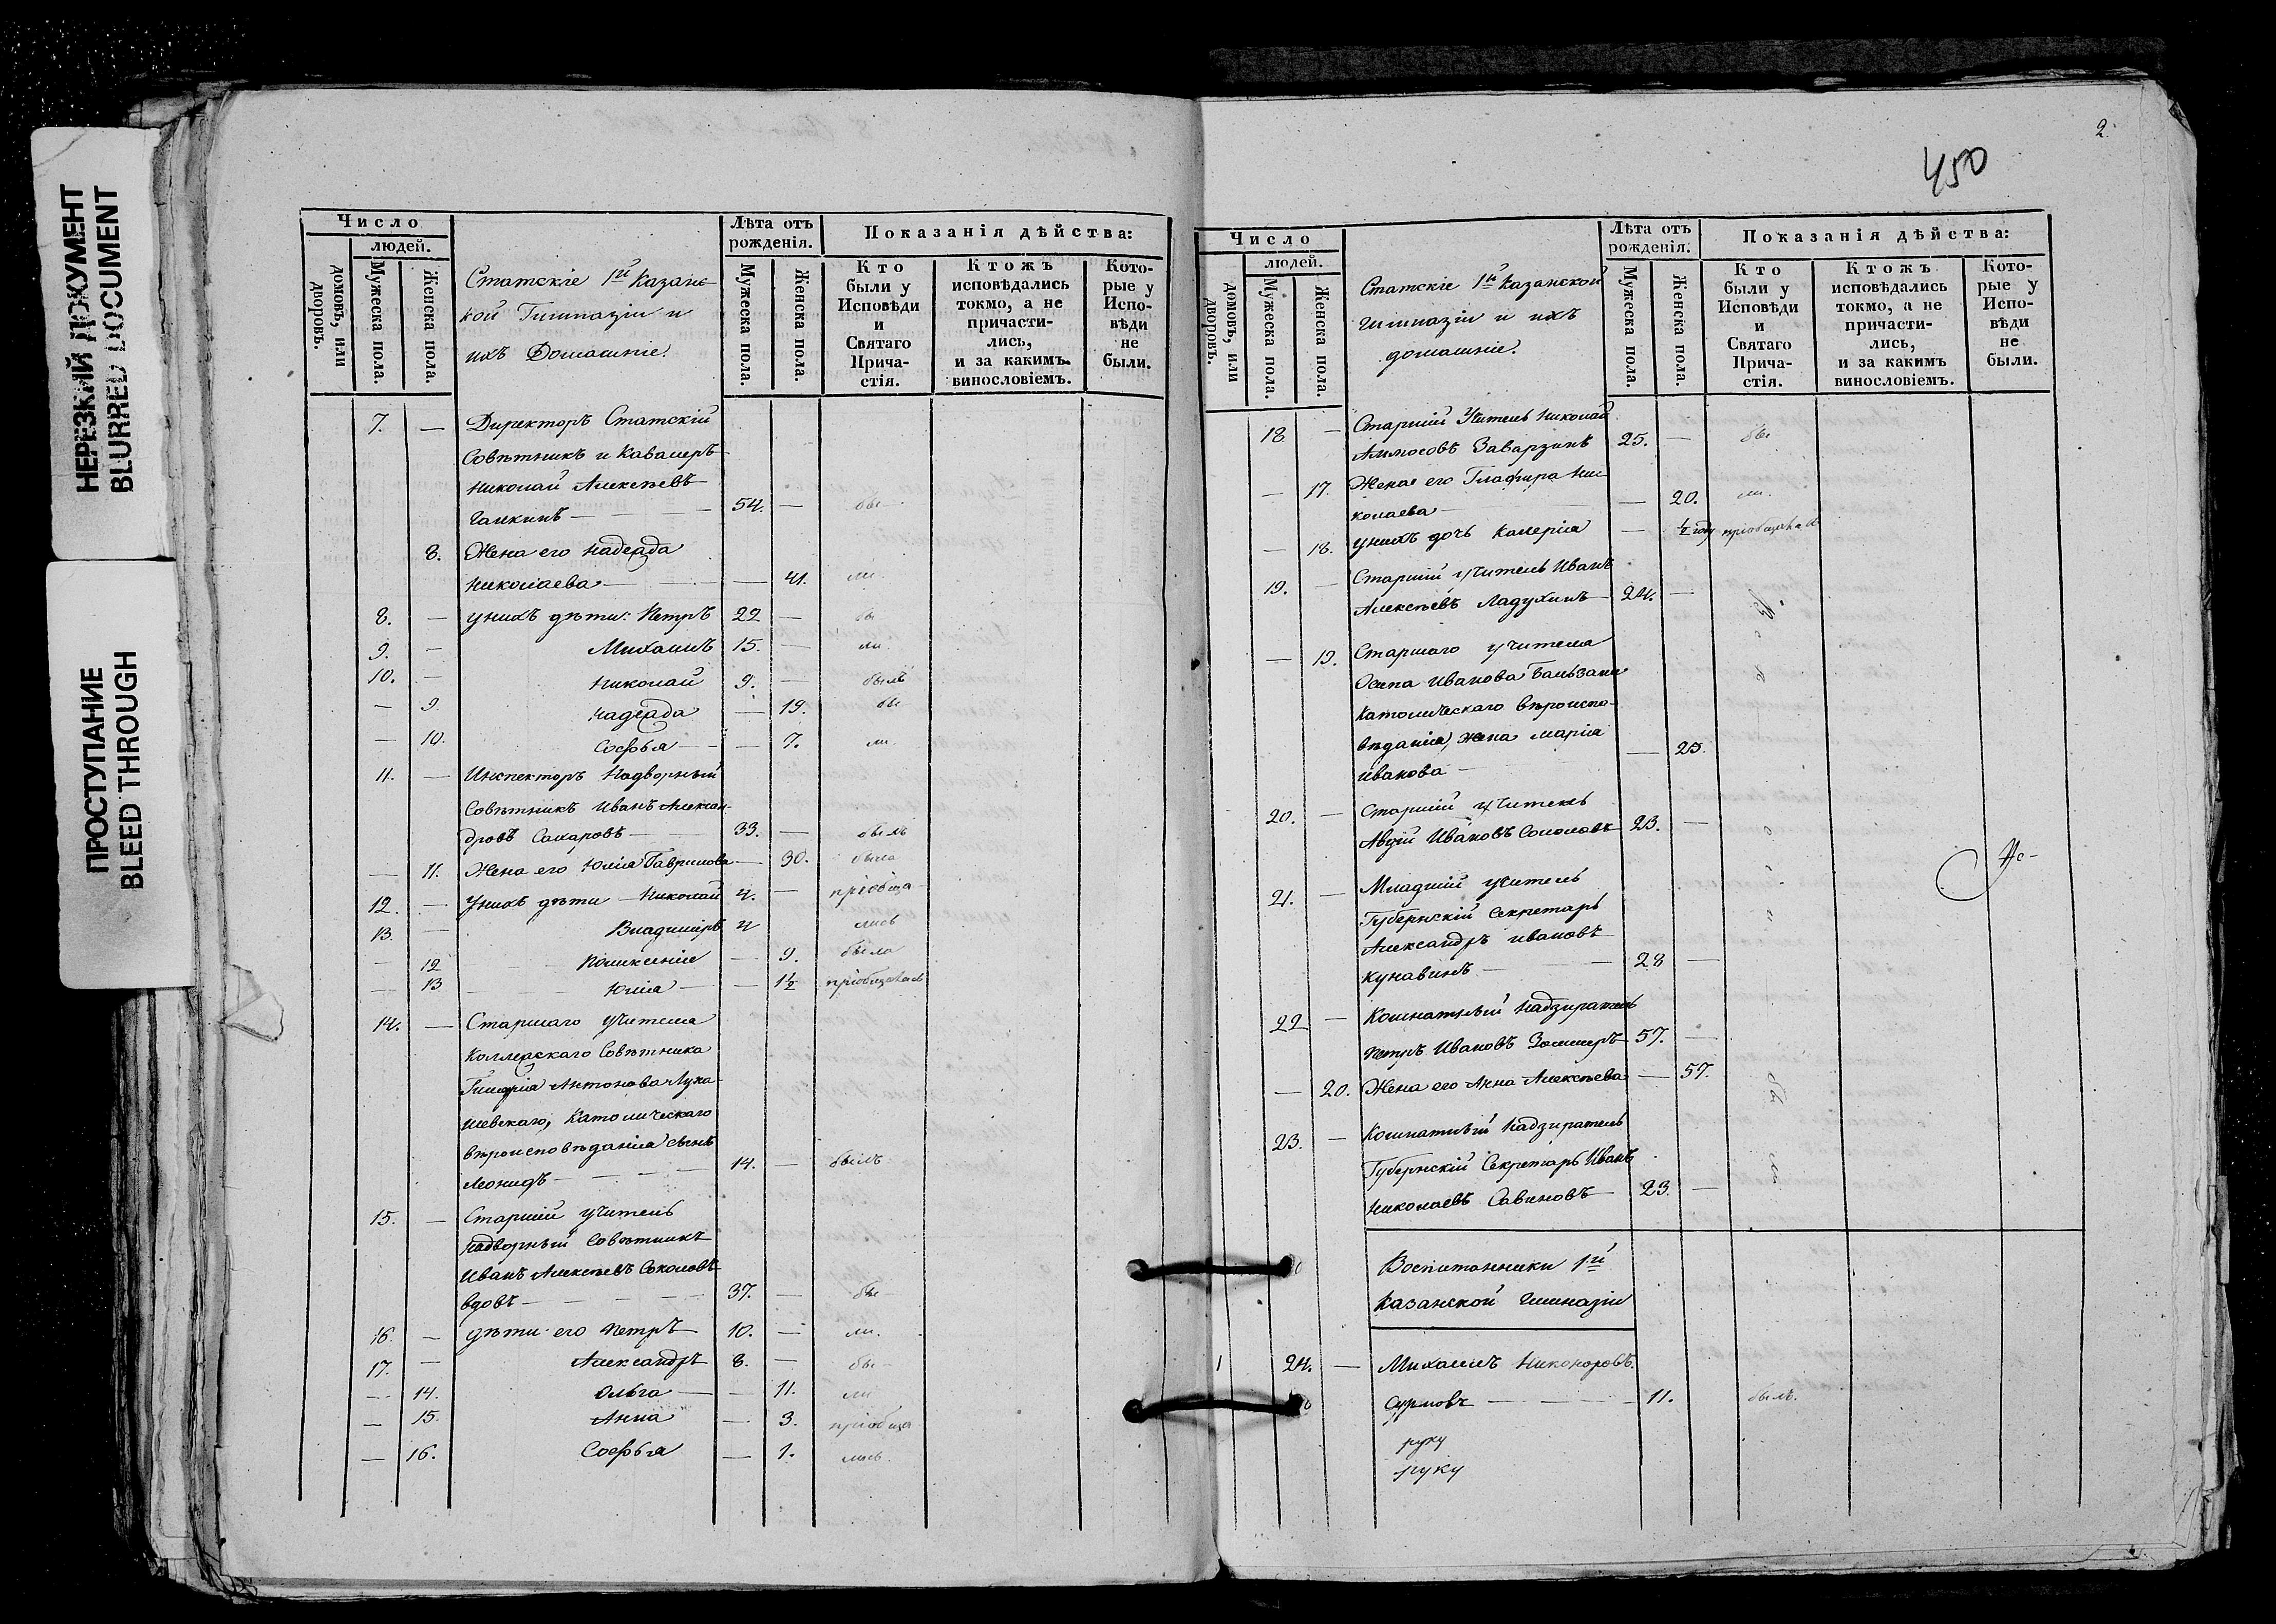 НЕРЕЗКИЙ ДОКУМЕНТ
BLURRED DOCUMENT
ПРОСТУПАНИЕ
BLEED THROUGH
Число
людей.
домовъ, или дворовъ.
Мужеска пола.
Женска пола.
Статскіе 1й Казанс-
кой Гимназіи и
ихъ Домашніе.
Лѣта отъ рожденія.
Мужеска пола.
Женска пола.
Показанія дѣйства:
Кто были у Исповѣди и Святаго Прича-стія.
Ктожъ исповѣдались токмо, а не причасти-лись, и за какимъ винословіемъ.
Кото-рые у Испо-вѣди не были.
7. — Директоръ Статскій
Совѣтникъ и Кавалеръ
Николай Алексѣевъ
Галкинъ — 54. — бы-
8. Жена его Надежда
Николаева — — 41. ли.
8. — у нихъ дѣти: Петръ 22 — бы
9. — Михаилъ 15. — ли.
10. — Николай 9. — былъ
— 9. Надежда — 19. бы
— 10. Софья — — 7. ли.
11. — Инспекторъ Надворный
Совѣтникъ Иванъ Алексан-
дровъ Сахаровъ — 33. — былъ
— 11. Жена его Юлія Гаврилова — 30. была
12. — У нихъ дѣти — Николай 4. — пріобща-
13. — Владиміръ 4 лись
— 12 — 9. была
— 13 — Юлія — — 1½ пріобщалась
14. — Старшаго учителя
Коллежскаго Совѣтника
Антонова Лука-
шевскаго, Католическаго
вѣроисповѣданія сынъ
Леонидъ — 14. — былъ
15. — Старшій учитель
Надворный Совѣтникъ
Иванъ Алексѣевъ Соколовъ
вдовъ — 37. — бы-
16. — дѣти его Петръ 10. — ли.
17. — Александръ 8. — бы-
— 14. Ольга — — 11. ли
— 15. Анна — 3. пріобща
— 16. Софья — 1. лись.
2.
450
Число
людей.
домовъ, или дворовъ.
Мужеска пола.
Женска пола.
Статскіе 1й Казанской
Гимназіи и ихъ
домашніе.
Лѣта отъ рожденія.
Мужеска пола.
Женска пола.
Показанія дѣйства:
Кто были у Исповѣди и Святаго Прича-стія.
Ктожъ исповѣдались токмо, а не причасти-лись, и за какимъ винословіемъ.
Кото-рые у Испо-вѣди не были.
18 — Старшій Учитель Николай
Аммосовъ Заварзинъ 25. — бы
— 17. Жена его Глафира Ни-
колаева — — 20. ли.
— 18. у нихъ дочь Калерія — ½ году пріобщалась
19. — Старшій учитель Иванъ
Алексѣевъ Ладухинъ 24. —
— 19. Старшаго учителя
Осипа Иванова Бальзани
Католическаго вѣроиспо-
вѣданія, жена Марія
Иванова — — 23.
20. — Старшій учитель
Ивановъ Соколовъ 23. —
21. — Младшій учитель
Губернскій Секретарь
Александръ Ивановъ
Кунавинъ — 28 —
22 — Комнатный Надзиратель
Петръ Ивановъ 57. —
— 20. Жена его Анна Алексѣева — 57.
23. — Комнатный Надзиратель
Губернскій Секретарь Иванъ
Николаевъ Савиновъ — 23. —
Воспитанники 1й
Казанской Гимназіи
1 24. — Михаилъ Никоноровъ
— 11. былъ.
руку
руку